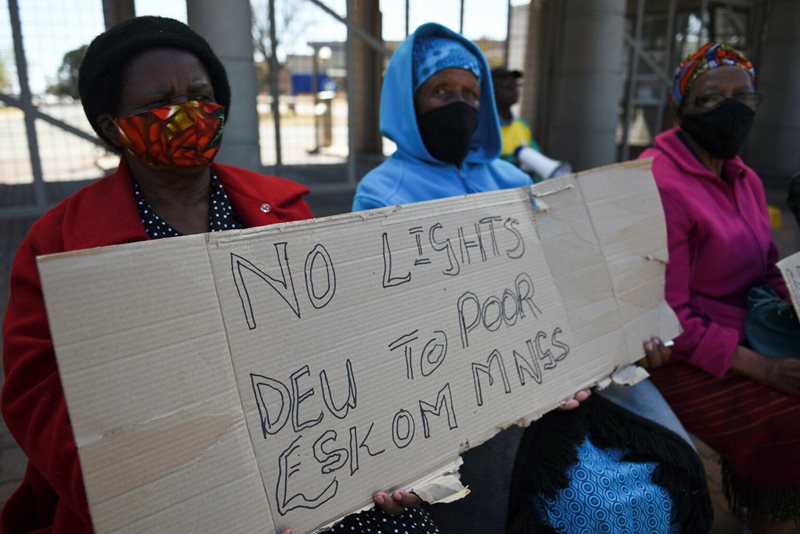 NO LIGHTS
DEW TO POOR
ESKOM MNGS